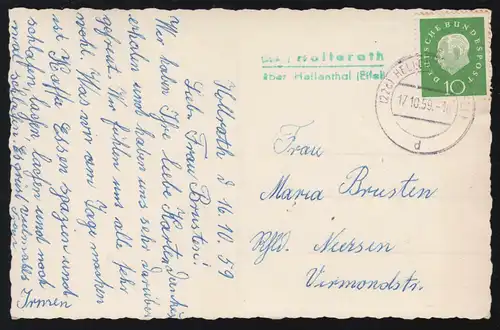 Hollrath d 16.10.59
Liebe Frau Brusten!
Wir haben Ihre liebe Karte dankend
erhalten und haben uns sehr darüber
gefreut. Wir fühlen uns alle sehr
wohl. Was wir am Tage machen
ist Kaffe Essen spazieren und
schlafen, lesen, lachen und noch
mal schlafen. Es sind
Irmen
Hollerath
über Hellenthal (Eifel)
DEUTSCHE BUNDESPOST
10
(22c) HELLENTHAL
17.10.59.
d
Frau
Maria Brusten
Rhld. Neersen
Viermondstr.